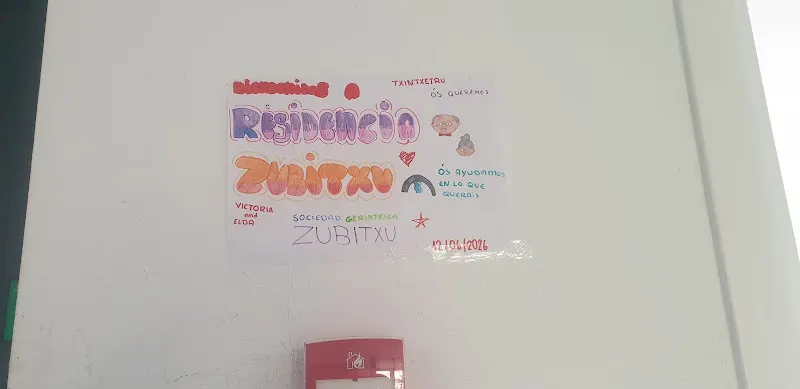 BIENVENIDOS A
TXINTXETRU
ÓS QUEREMOS
RESIDENCIA
ZUBITXU
ÓS AYUDAMOS
EN LO QUE
QUERAIS
VICTORIA
and
ELDA
SOCIEDAD GERIATRICA
ZUBITXU
12/06/2026